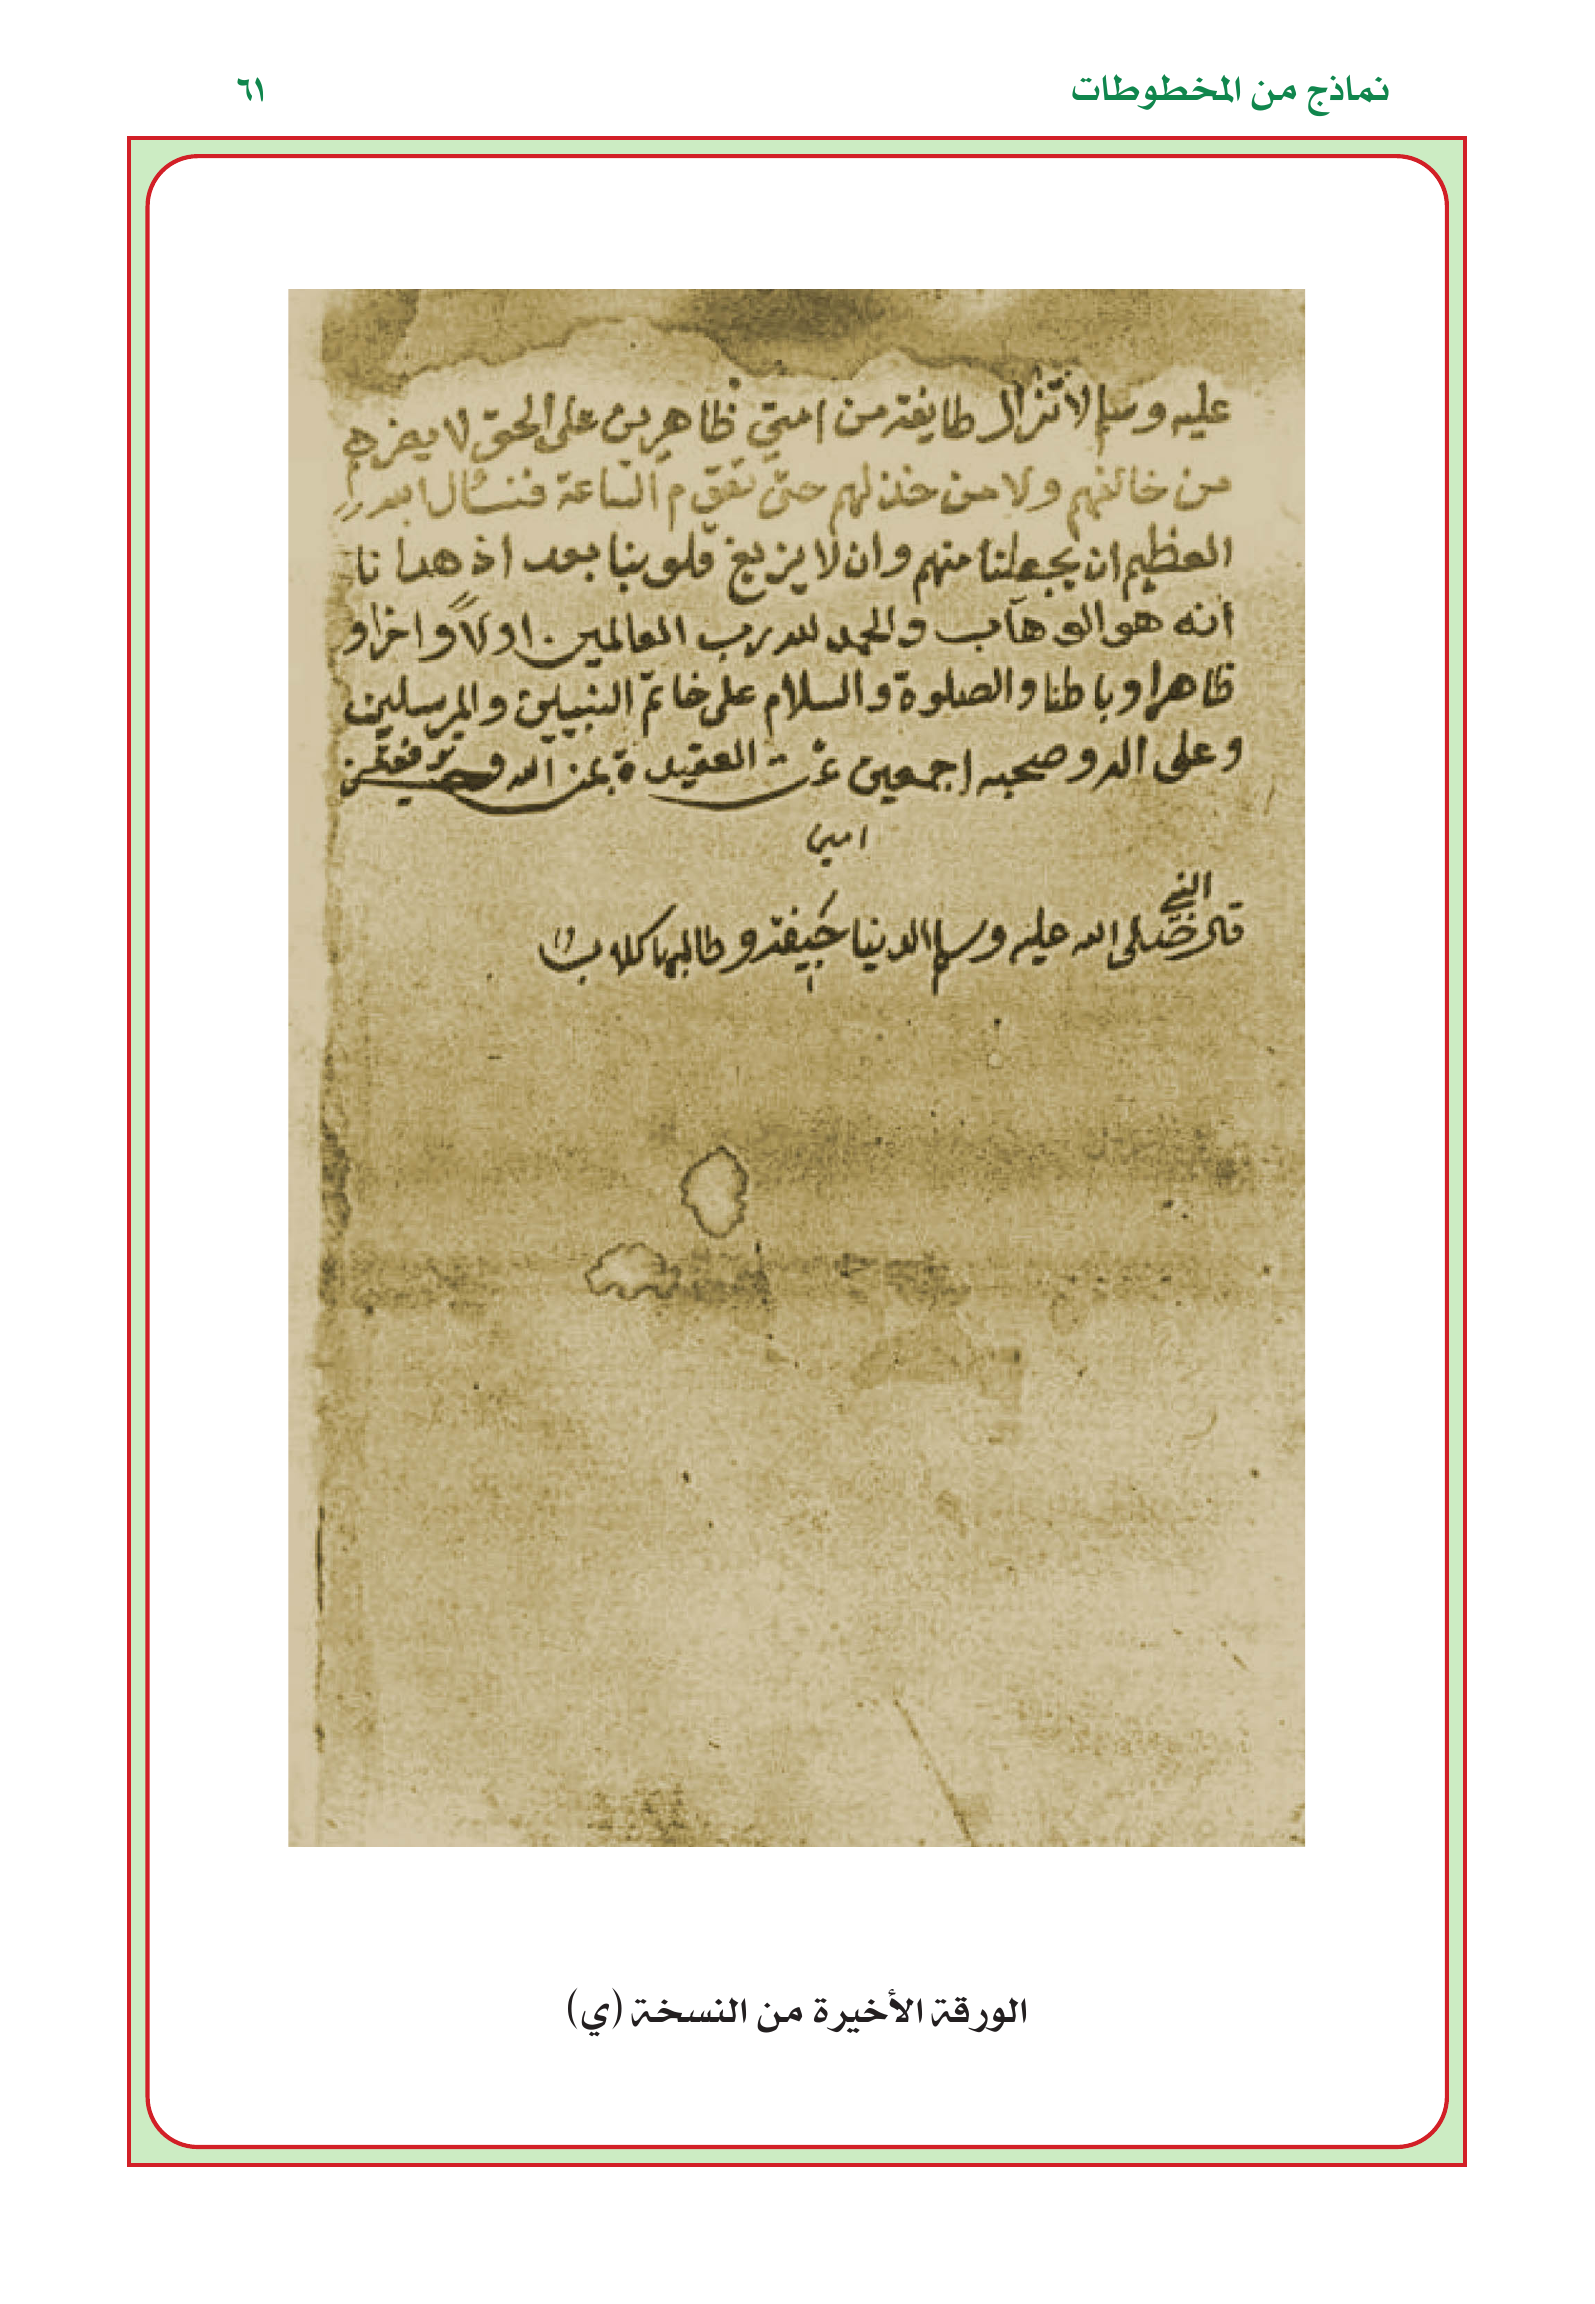 نماذج من المخطوطات
٦١
عليه وسلم لا تزال طايفة من امتي ظاهرين على الحق لا يضرهم
من خالفهم ولا من خذلهم حتى تقوم الساعة فنسئال الله
العظيم ان يجعلنا منهم وان لا يزيغ قلوبنا بعد اذ هدانا
انه هو الوهاب والحمد لله رب العالمين اولاً واخرا و
ظاهرا وباطنا والصلوة والسلام على خاتم النبيين والمرسلين
وعلى اله وصحبه اجمعين تمت العقيدة بمن الله و
امين
قال النبي صلى الله عليه وسلم الدنيا جيفة وطالبها كلاب
الورقة الأخيرة من النسخة (ي)